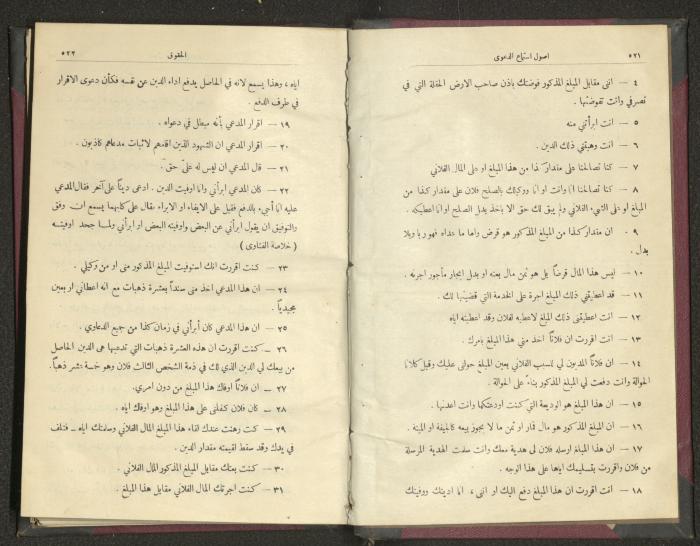 ٥٢١ اصول استماع الدعوى
٤ — انى مقابل المبلغ المذكور فوضتك باذن صاحب الارض الحقلة التي في
تصرفي وانت تفوضتها .
٥ — انت ابرأتني منه
٦ — انت وهبتني ذلك الدين .
٧ — كنا تصالحنا على مقدار كذا من هذا المبلغ او على المال الفلاني
٨ — كنا تصالحنا انا وانت او انا ووكيلك بالصلح فلان على مقدار كذا من
المبلغ او على الشيء الفلاني ولم يبق لك حق الا باخذ بدل الصلح او انا اعطيكه .
٩ — ان مقدار كذا من المبلغ المذكور هو قرض واما ما عداه فهو ربا وبلا
بدل .
١٠ — ليس هذا المال قرضاً بل هو ثمن مال بعته او بدل ايجار مأجور اجرته .
١١ — قد اعطيتني ذلك المبلغ اجرة على الخدمة التي قضيتها لك .
١٢ — انت اعطيتني ذلك المبلغ لاعطيه لفلان وقد اعطيته اياه
١٣ — انت اقررت ان فلاناً اخذ مني هذا المبلغ بامرك .
١٤ — ان فلاناً المديون لي لسبب الفلاني بعين المبلغ حوالى عليك وقبل كلانا
الحوالة وانت دفعت لي المبلغ المذكور بناءً على الحوالة .
١٥ — ان هذا المبلغ هو الوديعة التي كنت اودعتكها وانت اعدتها .
١٦ — ان المبلغ المذكور هو مال قمار او ثمن ما لا يجوز بيعه كالجيفة او الميتة .
١٧ — ان هذا المبلغ اوسله فلان لي هدية معك وانت سلمت الهدية المرسلة
من فلان واقررت بتسليمك اياها على هذا الوجه .
١٨ — انت اقررت ان هذا المبلغ دفع اليك او انى ، انا اديتك ووفيتك
الحقوق ٥٢٢
اياه ، وهذا يسمع لانه في الحاصل يدفع اداء الدين عن نفسه فكأن دعوى الاقرار
في طرف الدفع .
١٩ — اقرار المدعي بأنه مبطل في دعواه .
٢٠ — اقرار المدعي ان الشهود الذين اقدمهم لاثبات مدعاهم كاذبون .
٢١ — قال المدعي ان ليس له عليّ حق .
٢٢ — كان المدعي ابرأني وانا اوفيت الدين . ادعى ديناً على آخر فقال المدعي
عليه انا أجيء بالدفع فقيل على الايفاء او الابراء فقال على كليهما يسمع ان وفق
والتوفيق ان يقول ابرأني عن البعض واوفيته البعض او ابرأني ولما جحد اوفيته
( خلاصة الفتاوى )
٢٣ — كنت اقررت انك استوفيت المبلغ المذكور منى او من وكيلي .
٢٤ — ان هذا المدعي اخذ منى سنداً بعشرة ذهبات مع انه اعطاني اربعين
مجيدياً .
٢٥ — ان هذا المدعي كان أبرأني في زمان كذا من جميع الدعاوي .
٢٦ — كنت اقررت ان هذه العشرة ذهبات التي تدعيها هى الدين الحاصل
من بيعك لي الدين الذي لك في ذمة الشخص الثالث فلان وهو خمسة عشر ذهباً .
٢٧ — ان فلاناً اوفك هذا المبلغ من دون امري .
٢٨ — كان فلان كفلنى على هذا المبلغ وهو اوفك اياه .
٢٩ — كنت رهنت عندك لقاء هذا المبلغ المال الفلاني وسلمتك اياه — فتلف
في يدك وقد سقط لقيمته مقدار الدين .
٣٠ — كنت بعتك مقابل المبلغ المذكور المال الفلاني .
٣١ — كنت اجرتك المال الفلاني مقابل هذا المبلغ .